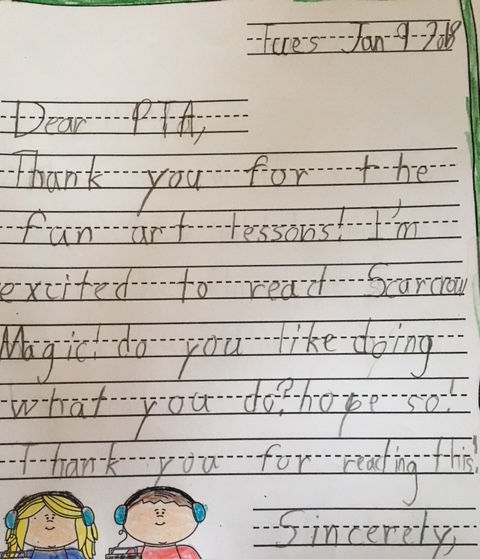 Tues Jan 9 2018
Dear PTA,
Thank you for the
fun art lessons! I'm
excited to read Scarcrow
Magic! do you like doing
what you do? hope so!
Thank you for reading this!
Sincerely,